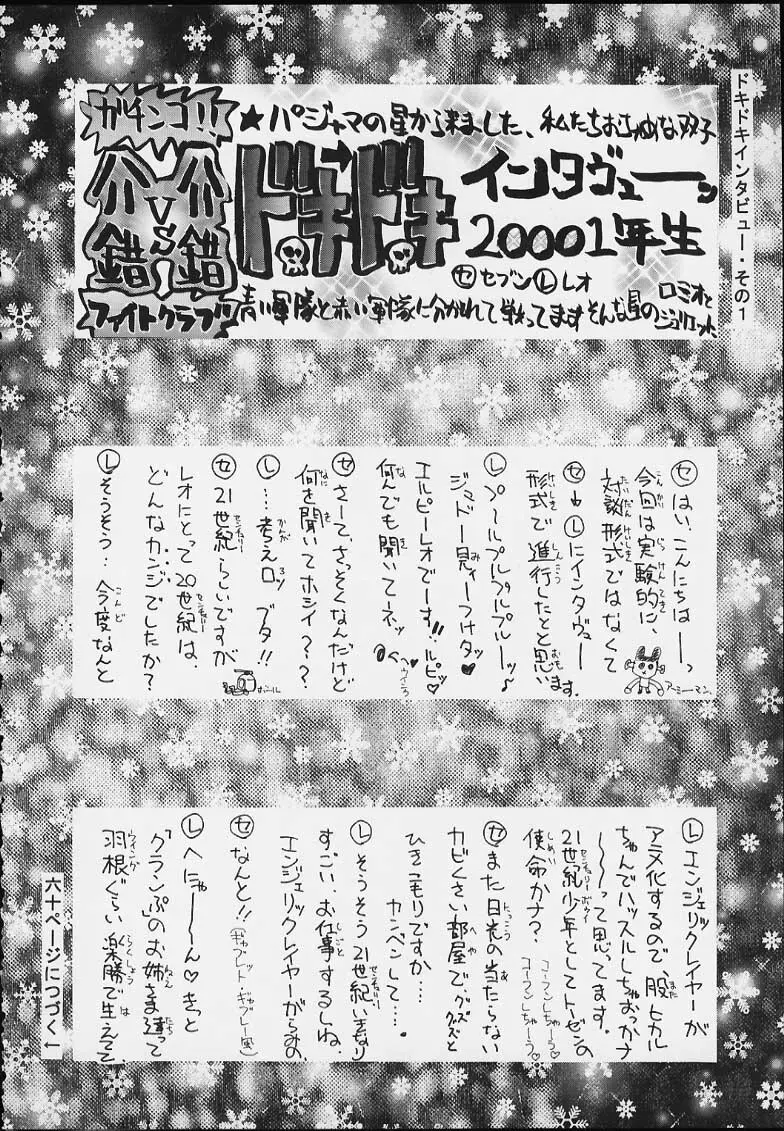 ドキドキインタビュー・その1
ガチンコ!!
介錯
VS
介錯
ファイトクラブ!!
★パジャマの星から来ました、私たちおちゃめな双子
ドキドキ
インタヴューーッ
20001年生
セセブン レレオ
青い軍隊と赤い軍隊に分かれて戦ってますそんな星の
ロミオと
ジュリエット
セ はい、こんにちはーーっ
今回は実験的に、
対談形式ではなくて
セ→レにインタヴュー
形式で進行したいと思います。
アーミーマン。
レ プ〜ルプルプルプルーッ♪
ジュドー見ィーつけタッ♥
エルピーレオでーす!!ルピッ♥
何んでも聞いてーネッ
セ さーて、さっそくなんだけど
何を聞いてホシイ???
レ …考えロッ ブタ!!
セ 21世紀らしいですが
レオにとって20世紀は、
どんなカンジでしたか?
ボール
レ そうそう…今度なんと
レ エンジェリックレイヤーが
アニメ化するので、股ヒカル
ちゃんでハッスルしちゃおっかナ
〜〜って思ってます。
21世紀少年としてトーゼンの
使命かナ?
コーフンしちゃーう♡
コーフンしちゃーう♡
セ また日光の当たらない
カビくさい部屋で、グズグズと
ひきこもりですか…
カンベンして…。
レ そうそう21世紀いきなり
すごい、お仕事するしね。
エンジェリックレイヤーがらみの
セ なんと!!
(ギャブレット・ギャブレー風)
レ へにゃ〜〜ん♡きっと
「クランプ」のお姉さま達って
羽根ぐらい楽勝で生えてて
六十ページにつづく←